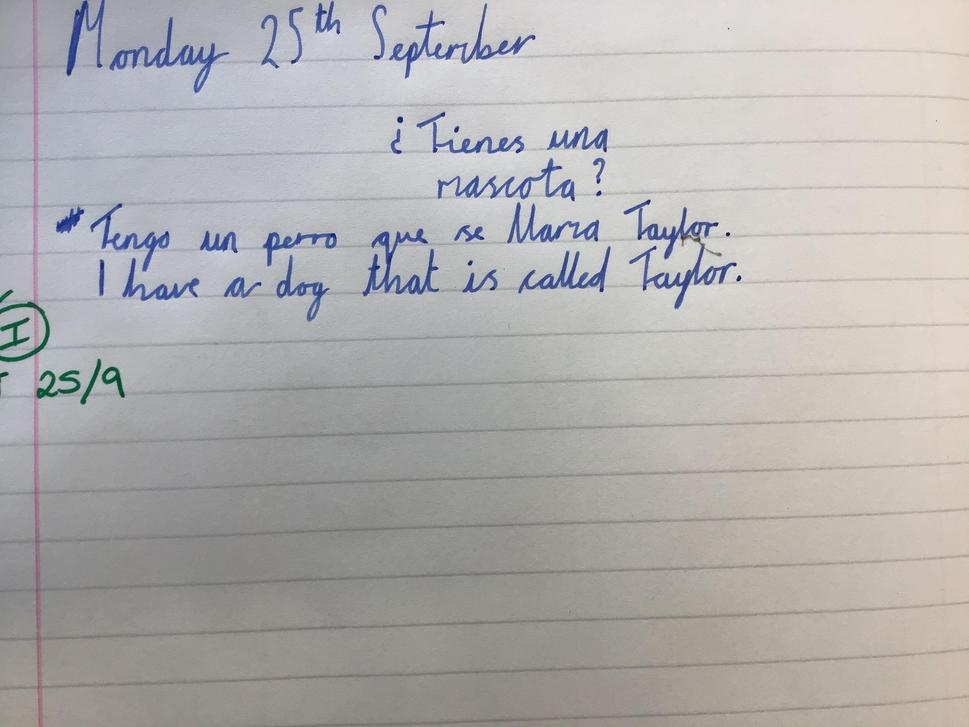 Monday 25th September
¿Tienes una
mascota?
Tengo un perro que se Marza Taylor.
I have a dog that is called Taylor.
I
25/9